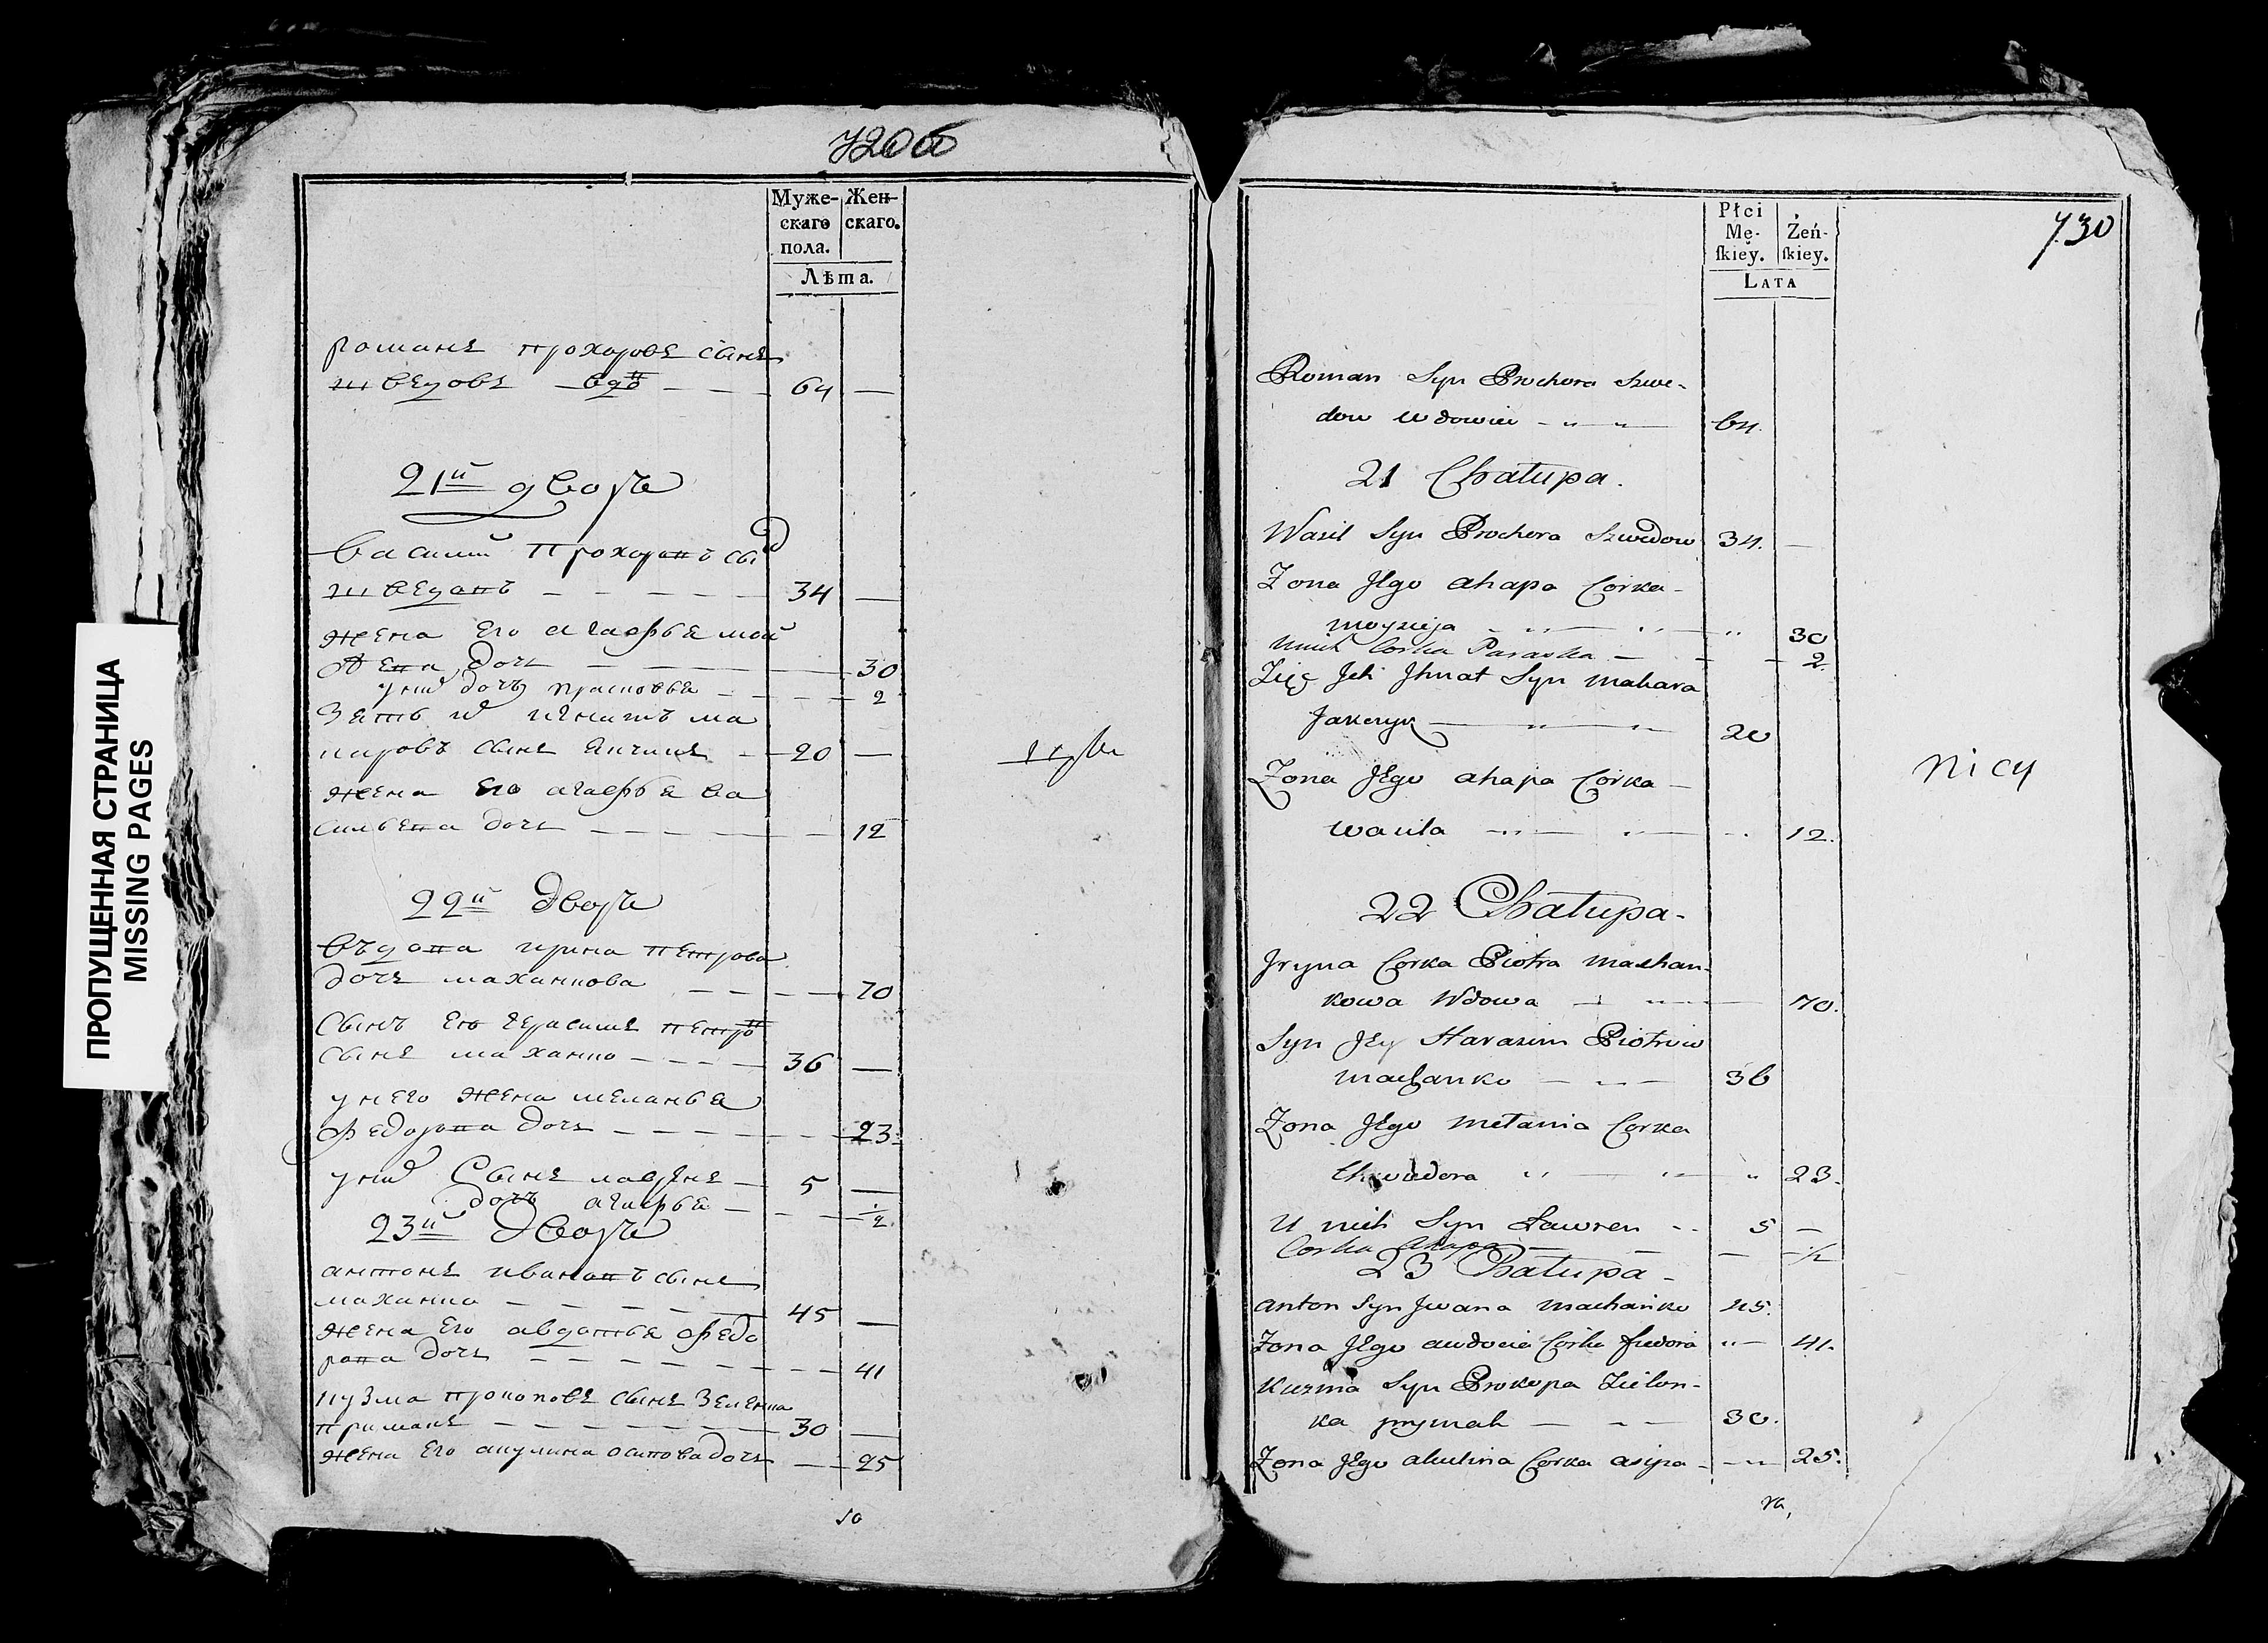 ПРОПУЩЕННАЯ СТРАНИЦА
MISSING PAGES
720б
Муже-
скаго
пола.
Жен-
скаго.
Лѣта.
романъ прохоровъ сынъ
шведовъ вдо 64 —
21й дворъ
василий прохоровъ сы
шведовъ 34 —
жена его агафья мой
сѣева дочь 30
у них дочь прасковья 2
зять их игнатъ ма
каровъ сынъ 20 —
жена его агафья ва
сильева дочь 12
22й дворъ
въдова ирина петрова
дочь маханкова 70
сынъ его герасимъ петро
сынъ маханко 36 —
у него жена меланья
федорова дочь 23
у них сынъ 5 —
дочь агафья ½
23й дворъ
антонъ ивановъ сынъ
маханко 45 —
жена его авдотья федо
рова дочь 41
кузма прокоповъ сынъ зеленка
примакъ 30 —
жена его акулина осипова дочь — 25
Płci
Mę-
ſkiey.
Żeń-
ſkiey.
Lata
730
Roman Syn Prochora Szwe-
dow wdowiec 64.
21 Chałupa.
Wasil Syn Prochora Szwedow 34. —
Zona Jego ahapa Corka
moyzieja 30
u nich Corka Paraska — 2.
Zięc Jch Jhnat Syn makara
20
Zona Jego ahapa Corka —
wasila 12.
nicy
22 Chałupa-
Jryna Corka Piotra machan-
kowa Wdowa 70.
Syn Jey Harasim Piotrow
machanko 36
Zona Jego mełania Corka
Chwiedora 23.
U nich Syn Ławren 5 —
Corka ahapa — ½
23 Chałupa-
anton Syn Jwana machanko 45.
Zona Jego audocia Corka fiedora 41.
Kuzma Syn Prokopa Zielon-
ka prymak 30.
Zona Jego akulina Corka asipa 25.